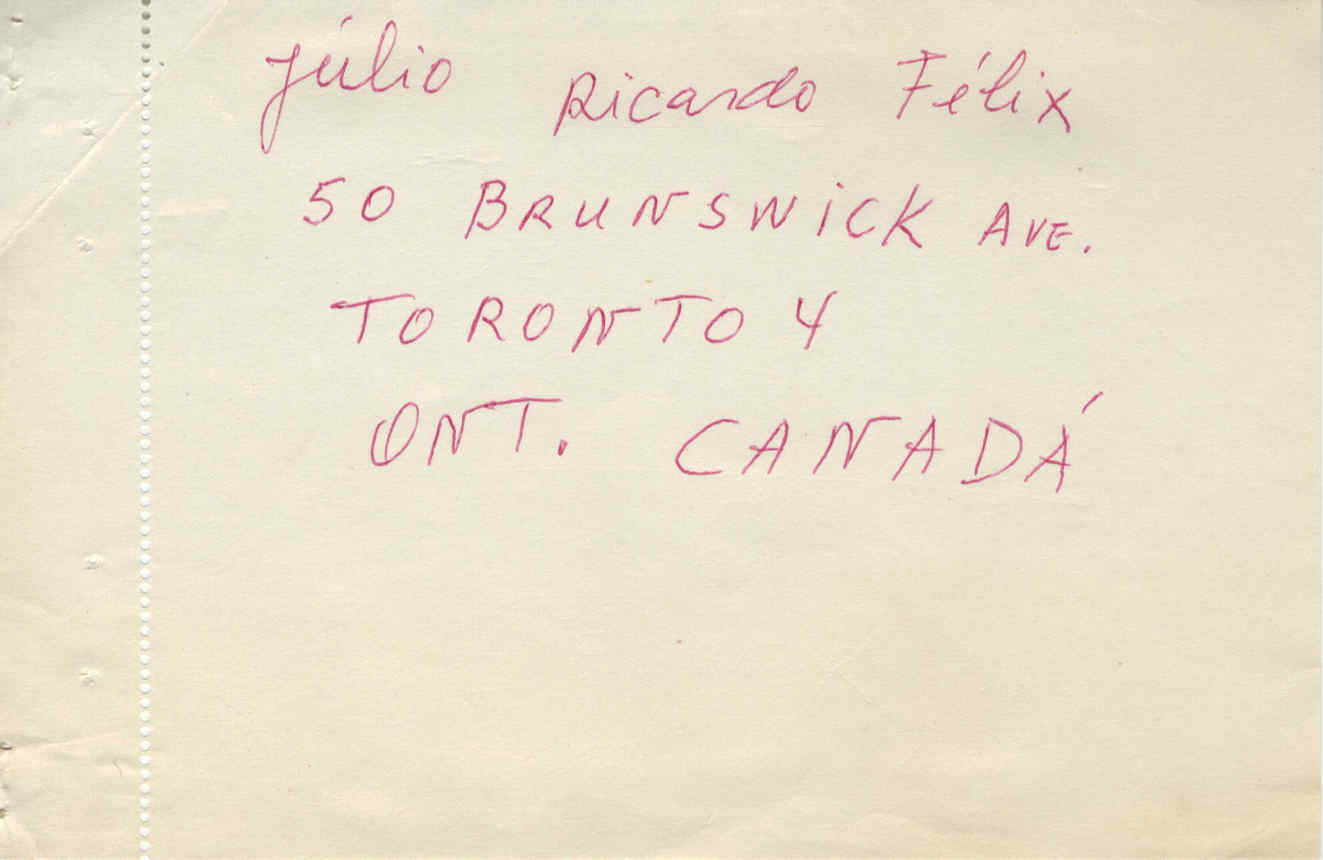 Júlio Ricardo Félix
50 BRUNSWiCK AVE.
TORONTO 4
ONT. CANADÁ